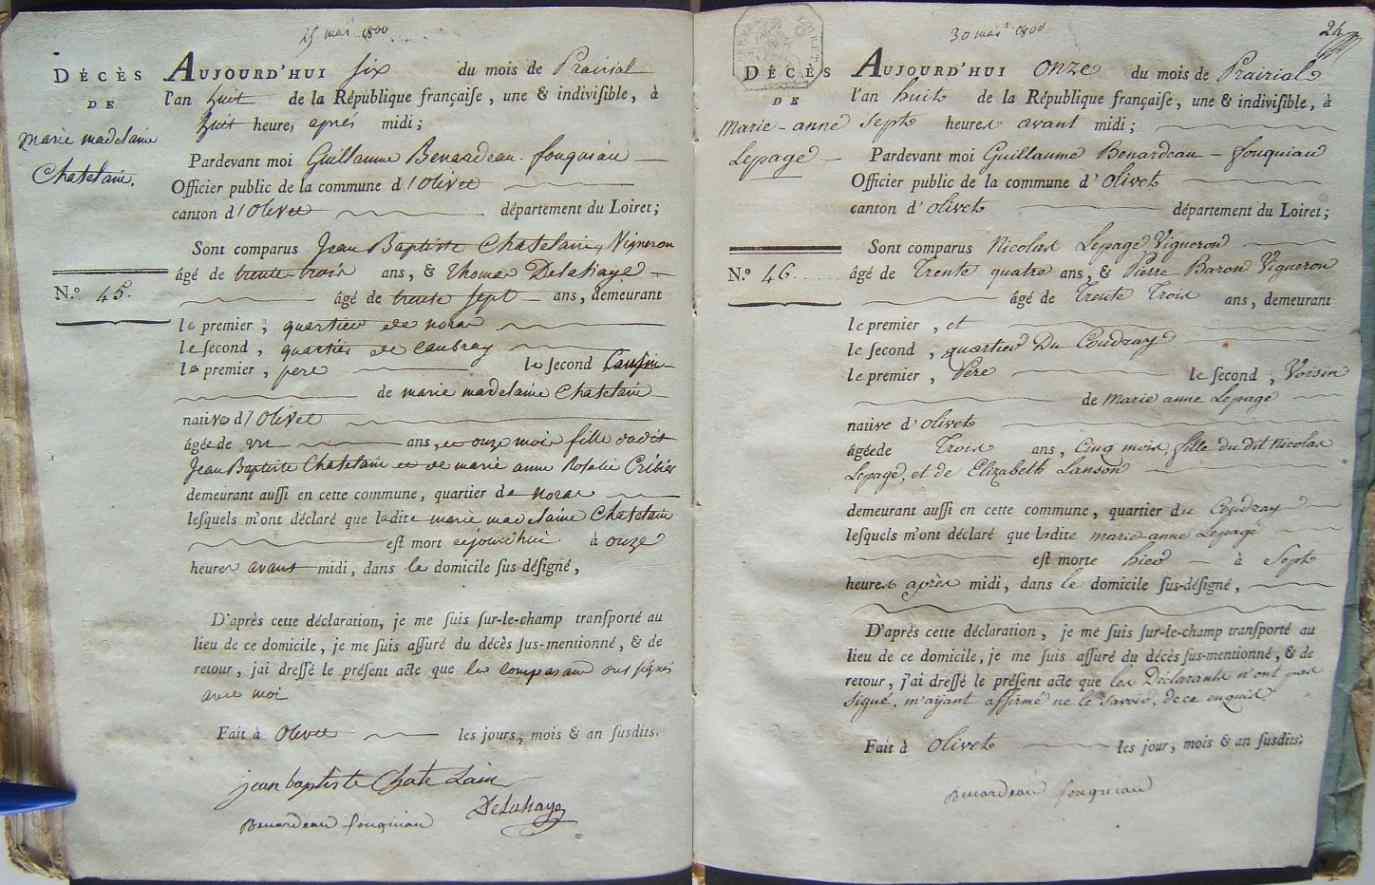 25 mai 1800
DÉCÈS
DE
marie madelaine
Chatelain.
N.º 45.
AUJOURD'HUI six du mois de Prairial
l'an huit de la République françaiſe, une & indiviſible, à
huit heures après midi;
Pardevant moi Guillaume Benardeau-fouquiau
Officier public de la commune d'Olivet
canton d'Olivet département du Loiret;
Sont comparus Jean Baptiste Chatelain, Vigneron
âgé de trente-trois ans, & Thomas Delahaye
âgé de trente sept ans, demeurant
le premier, quartier de noras
le ſecond, quartier de caubray
le premier, pere le ſecond Cousin
de marie madelaine Chatelain
native d'Olivet
âgée de un ans, et onze mois fille dudit
Jean Baptiste Chatelain et de marie anne Rosalie
demeurant auſſi en cette commune, quartier de noras
leſquels m'ont déclaré que ladite marie madelaine Chatelain
eſt mort aujourd'hui à onze
heures avant midi, dans le domicile ſus-déſigné,
D'après cette déclaration, je me ſuis ſur-le-champ tranſporté au
lieu de ce domicile, je me ſuis aſſuré du décès ſus-mentionné, & de
retour, j'ai dreſſé le préſent acte que les comparans ont signés
avec moi
Fait à Olivet les jours, mois & an ſuſdits.
jean baptiste Chatelain
Delahaye
Benardeau fouquiau
30 mai 1800
24
DÉCÈS
DE
Marie-anne
Lepage
N.º 46.
AUJOURD'HUI onze du mois de Prairial
l'an huit de la République françaiſe, une & indiviſible, à
sept heures avant midi;
Pardevant moi Guillaume Benardeau-fouquiau
Officier public de la commune d'Olivet
canton d'Olivet département du Loiret;
Sont comparus Nicolas Lepage Vigneron
âgé de Trente quatre ans, & Pierre Baron Vigneron
âgé de Trente Trois ans, demeurant
le premier, et
le ſecond, quartier Du Coudray
le premier, Pere le ſecond, Voisin
de Marie anne Lepage
native d'olivet
âgée de Trois ans, Cinq mois, fille du dit Nicolas
Lepage, et de Elizabeth Lanson
demeurant auſſi en cette commune, quartier du Coudray
leſquels m'ont déclaré que ladite marie-anne Lepage
eſt morte hier à Sept
heures après midi, dans le domicile ſus-déſigné,
D'après cette déclaration, je me ſuis ſur-le-champ tranſporté au
lieu de ce domicile, je me ſuis aſſuré du décès ſus-mentionné, & de
retour, j'ai dreſſé le préſent acte que les Déclarants n'ont pas
signé, m'ayant affirmé ne le savoir, de ce enquis
Fait à Olivet les jour, mois & an ſuſdits.
Benardeau fouquiau